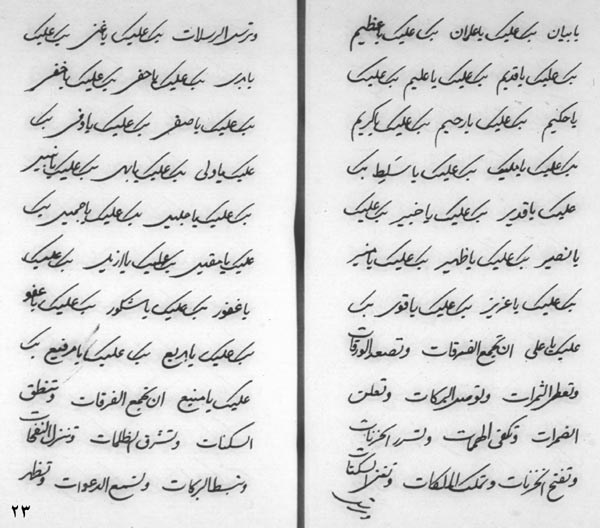 یا بیان بک علیک یا علان بک علیک یا عظیم
بک علیک یا قدیم بک علیک یا علیم بک علیک
یا حکیم بک علیک یا رحیم بک علیک یا کریم
بک علیک یا ملیک بک علیک یا سلیط بک
علیک یا قدیر بک علیک یا خبیر بک علیک
یا نصیر بک علیک یا ظهیر بک علیک یا منیر
بک علیک یا عزیز بک علیک یا قوی بک
علیک یا علی ان تجمع الفرقات و تصعد الورقات
و تعطر الثمرات و تعلن
و تکفی المهمات و تسرر
و تفتح و تملک الملکات و تنزل السکنات
و ترسل الرسلات بک علیک یا غنی بک علیک
بک علیک یا حفی بک علیک یا خفی
بک علیک یا صفی بک علیک یا وفی بک
علیک یا ولی بک علیک بک علیک
بک علیک یا جلیل بک علیک یا جمیل بک
علیک بک علیک بک علیک
یا غفور بک علیک یا شکور بک علیک یا عفو
بک علیک یا بدیع بک علیک یا رفیع بک
علیک یا منیع ان تجمع الفرقات و تنطق
السکنات و تشرق الظلمات و تنزل النفحات
و تبسط البرکات و تسمع الدعوات و تظهر
٢٣